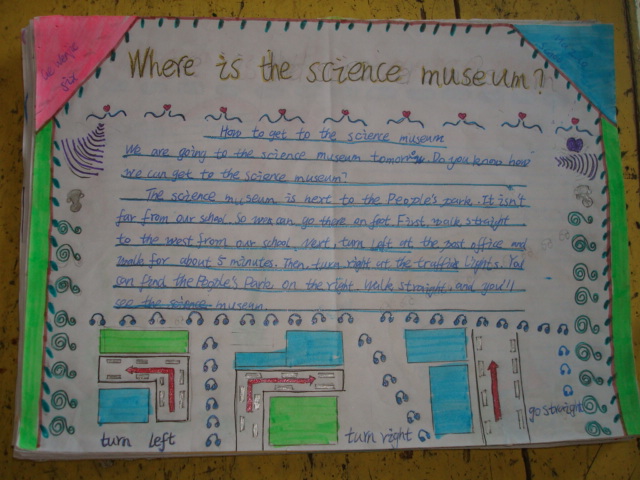 Where is the science museum?
How to get to the science museum
We are going to the science museum tomorrow. Do you know how
we can get to the science museum?
The science museum is next to the People's park. It isn't
far from our school. So we can go there on foot. First, walk straight
to the west from our school. Next, turn left at the post office and
walk for about 5 minutes. Then, turn right at the traffic lights. You
can find the People's Park on the right. Walk straight, and you'll
see the science museum.
turn left
turn right
go straight